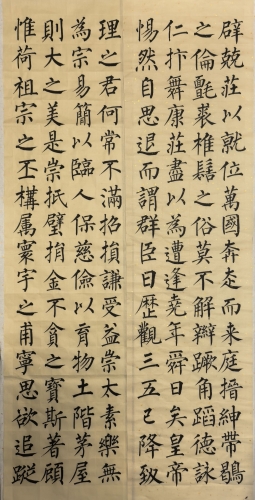 辟兢莊以就位萬國奔走而来庭搢紳帶鶡
之倫氈裘椎髻之俗莫不解辮蹶角蹈德詠
仁抃舞康莊盡以為遭逢堯年舜日矣皇帝
惕然自思退而謂群臣曰歷觀三五已降致
理之君何常不滿招損謙受益崇太素樂無
為宗易簡以臨人保慈儉以育物土階茅屋
則大之美是崇抵璧捐金不貪之寶斯著顧
惟荷祖宗之丕構属寰宇之甫寧思欲追蹤